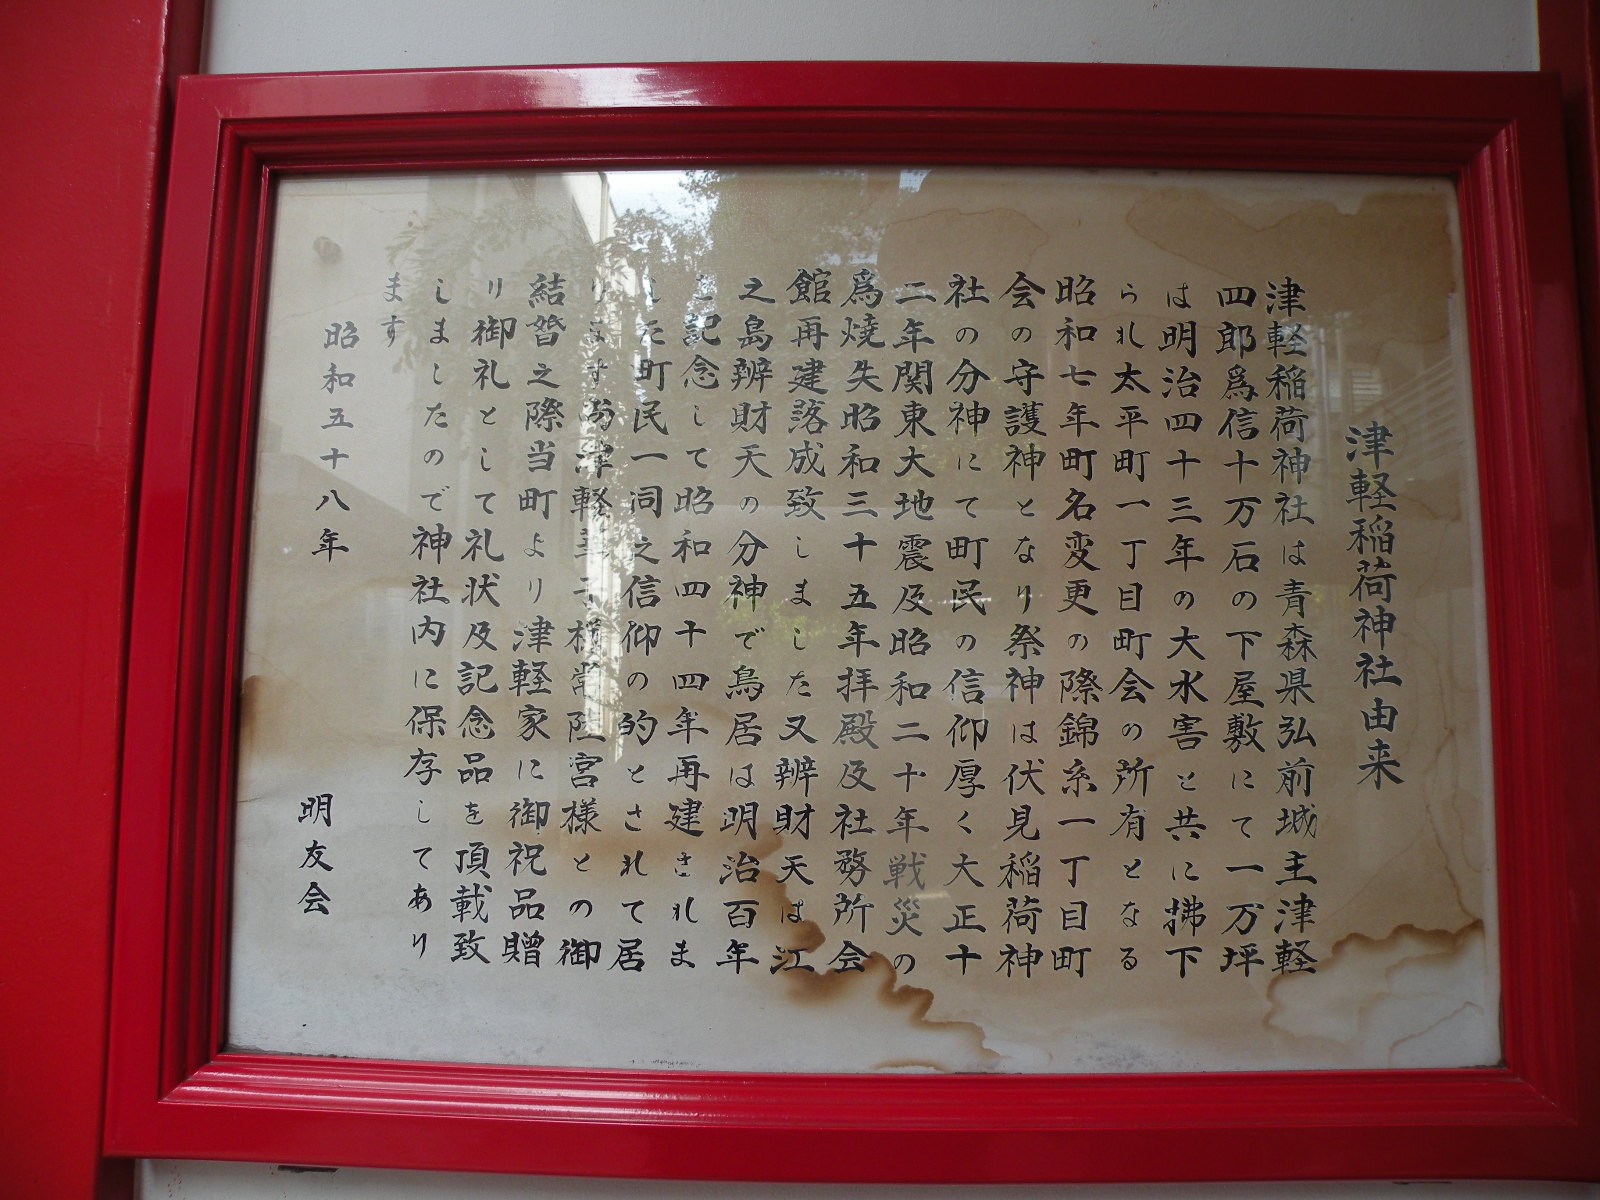 津軽稲荷神社由来
津軽稲荷神社は青森県弘前城主津軽
四郎爲信十万石の下屋敷にて一万坪
は明治四十三年の大水害と共に拂下
られ太平町一丁目町会の所有となる
昭和七年町名変更の際錦糸一丁目町
会の守護神となり祭神は伏見稲荷神
社の分神にて町民の信仰厚く大正十
二年関東大地震及昭和二十年戦災の
爲焼失昭和三十五年拝殿及社務所会
館再建落成致しました又辨財天は江
之島辨財天の分神で鳥居は明治百年
を記念して昭和四十四年再建されま
した町民一同之信仰の的とされて居
ります 津軽華子様常陸宮様との御
結婚之際当町より津軽家に御祝品贈
り御礼として礼状及記念品を頂載致
しましたので神社内に保存してあり
ます
昭和五十八年
明友会